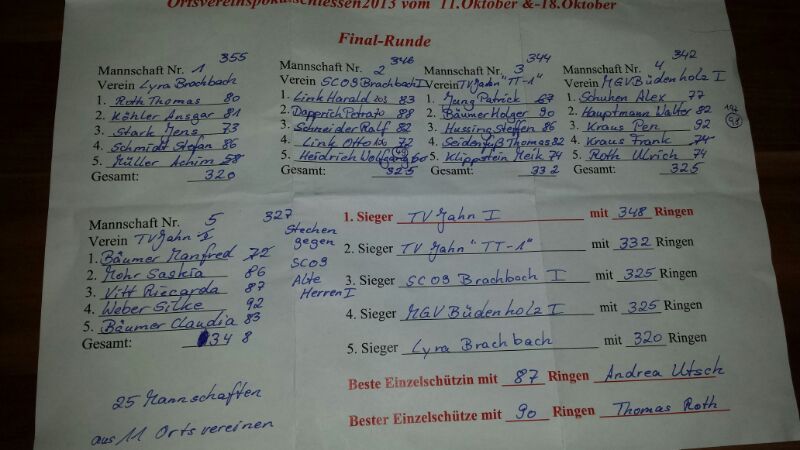 Ortsvereinspokalschiessen2013 vom 11.Oktober &-18.Oktober
Final-Runde
355
Mannschaft Nr. 1
Verein Lyra Brachbach
1. Roth Thomas 80
2. Köhler Ansgar 81
3. Stark Jens 73
4. Schmidt Stefan 86
5. Müller Achim 58
Gesamt: 320
346
Mannschaft Nr. 2
Verein SC09 Brachbach I
1. Link Harald 83
2. Dapprich 88
3. Schneider Ralf 82
4. Link Otto 72
5. Heidrich Wolfgang
Gesamt: 325
344
Mannschaft Nr. 3
Verein TV Jahn "TT-1"
1. Jung Patrick 67
2. Bäumer Holger 90
3. Hussing Steffen 86
4. Seidenfuß Thomas 82
5. Klippstein Meik 74
Gesamt: 332
342
Mannschaft Nr. 4
Verein MGV Büdenholz I
1. Schuhen Alex 77
2. Hauptmann Walter 82
3. Kraus Pen 92
4. Kraus Frank 74
5. Roth Ulrich 74
Gesamt: 325
327
Mannschaft Nr. 5
Verein TV Jahn I
1. Bäumer Manfred 72
2. Mohr Saskia 86
3. Vitt Riccarda 87
4. Weber Silke 92
5. Bäumer Claudia 83
Gesamt: 348
Stechen
gegen
SC09
Alte
Herren I
25 Mannschaften
aus 11 Ortsvereinen
1. Sieger TV Jahn I mit 348 Ringen
2. Sieger TV Jahn "TT-1" mit 332 Ringen
3. Sieger SC09 Brachbach I mit 325 Ringen
4. Sieger MGV Büdenholz I mit 325 Ringen
5. Sieger Lyra Brachbach mit 320 Ringen
Beste Einzelschützin mit 87 Ringen Andrea Utsch
Bester Einzelschütze mit 90 Ringen Thomas Roth